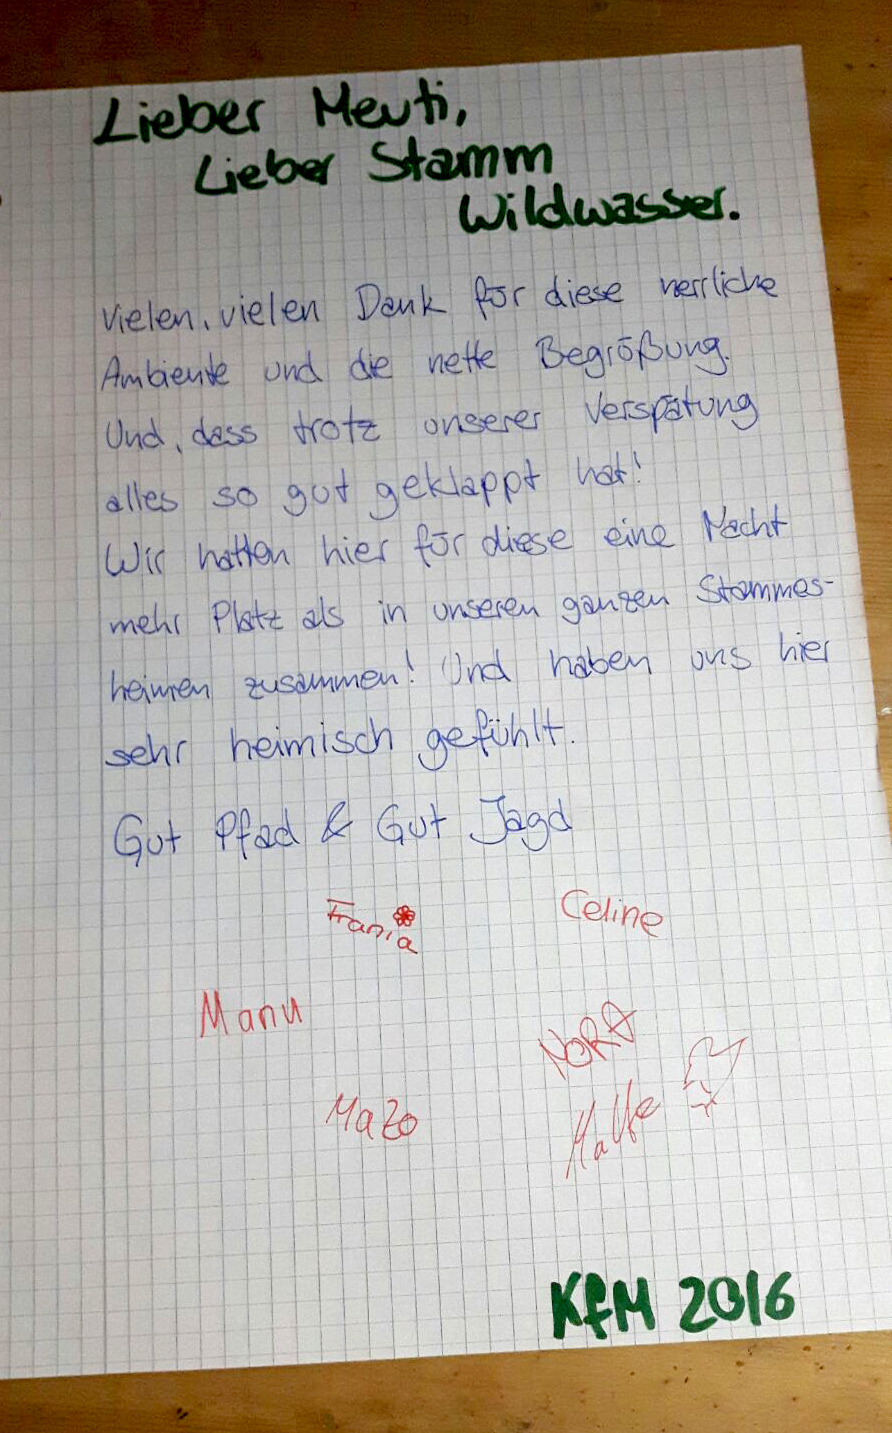 Lieber Meuti,
Lieber Stamm
Wildwasser.
Vielen, vielen Dank für diese herrliche
Ambiente und die nette Begrüßung.
Und, dass trotz unserer Verspätung
alles so gut geklappt hat!
Wir hatten hier für diese eine Nacht
mehr Platz als in unseren ganzen Stammes-
heimen zusammen! Und haben uns hier
sehr heimisch gefühlt.
Gut Pfad & Gut Jagd
Frania
Celine
Manu
NORA
MaZo
Malte
KfM 2016